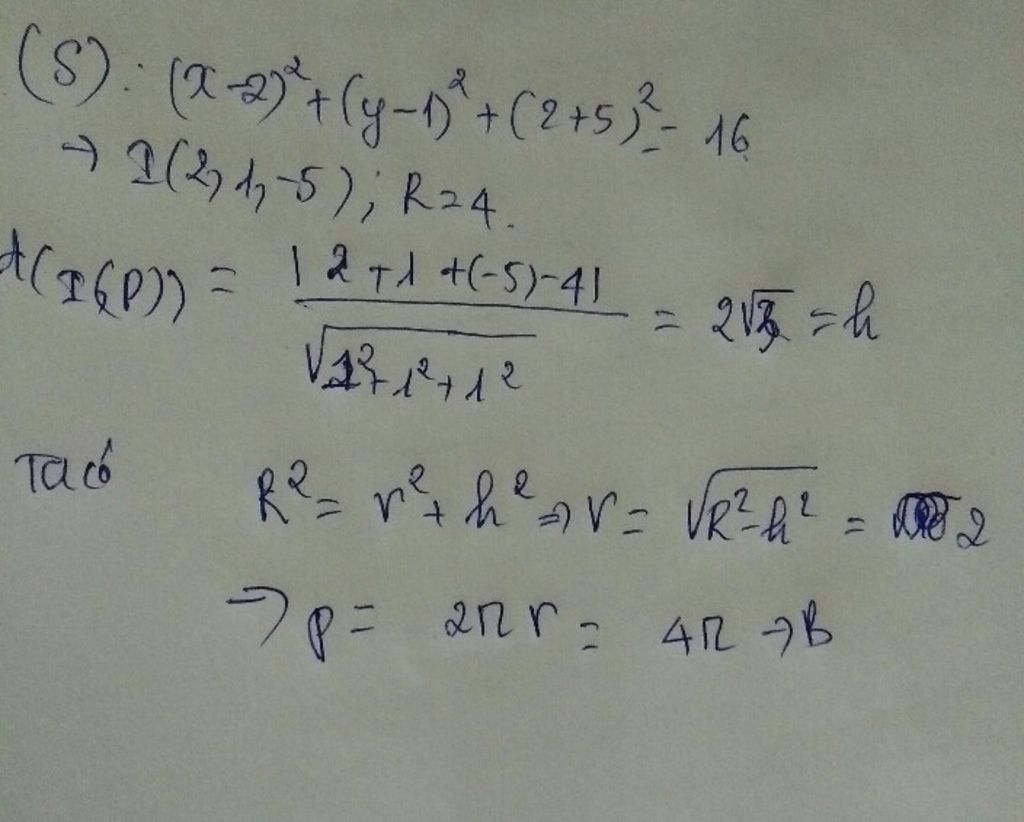 (S): (x-2)²+(y-1)²+(2+5)²= 16
→ I(2,1,-5); R=4.
d(I,(P)) = |2+1+(-5)-4| / √(1²+1²+1²) = 2√3 = h
Ta có R² = r² + h² ⇒ r = √(R²-h²) = 2
→ p = 2πr = 4π → B